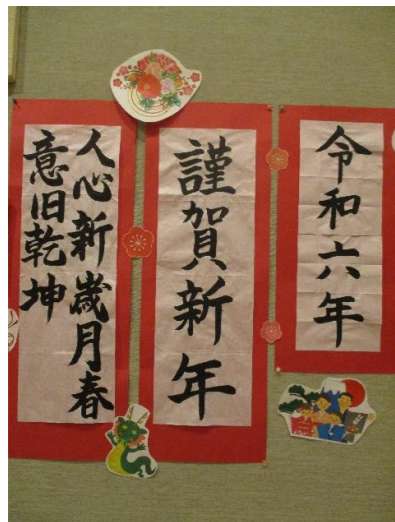 令和六年
謹賀新年
人心新歳月春
意旧乾坤